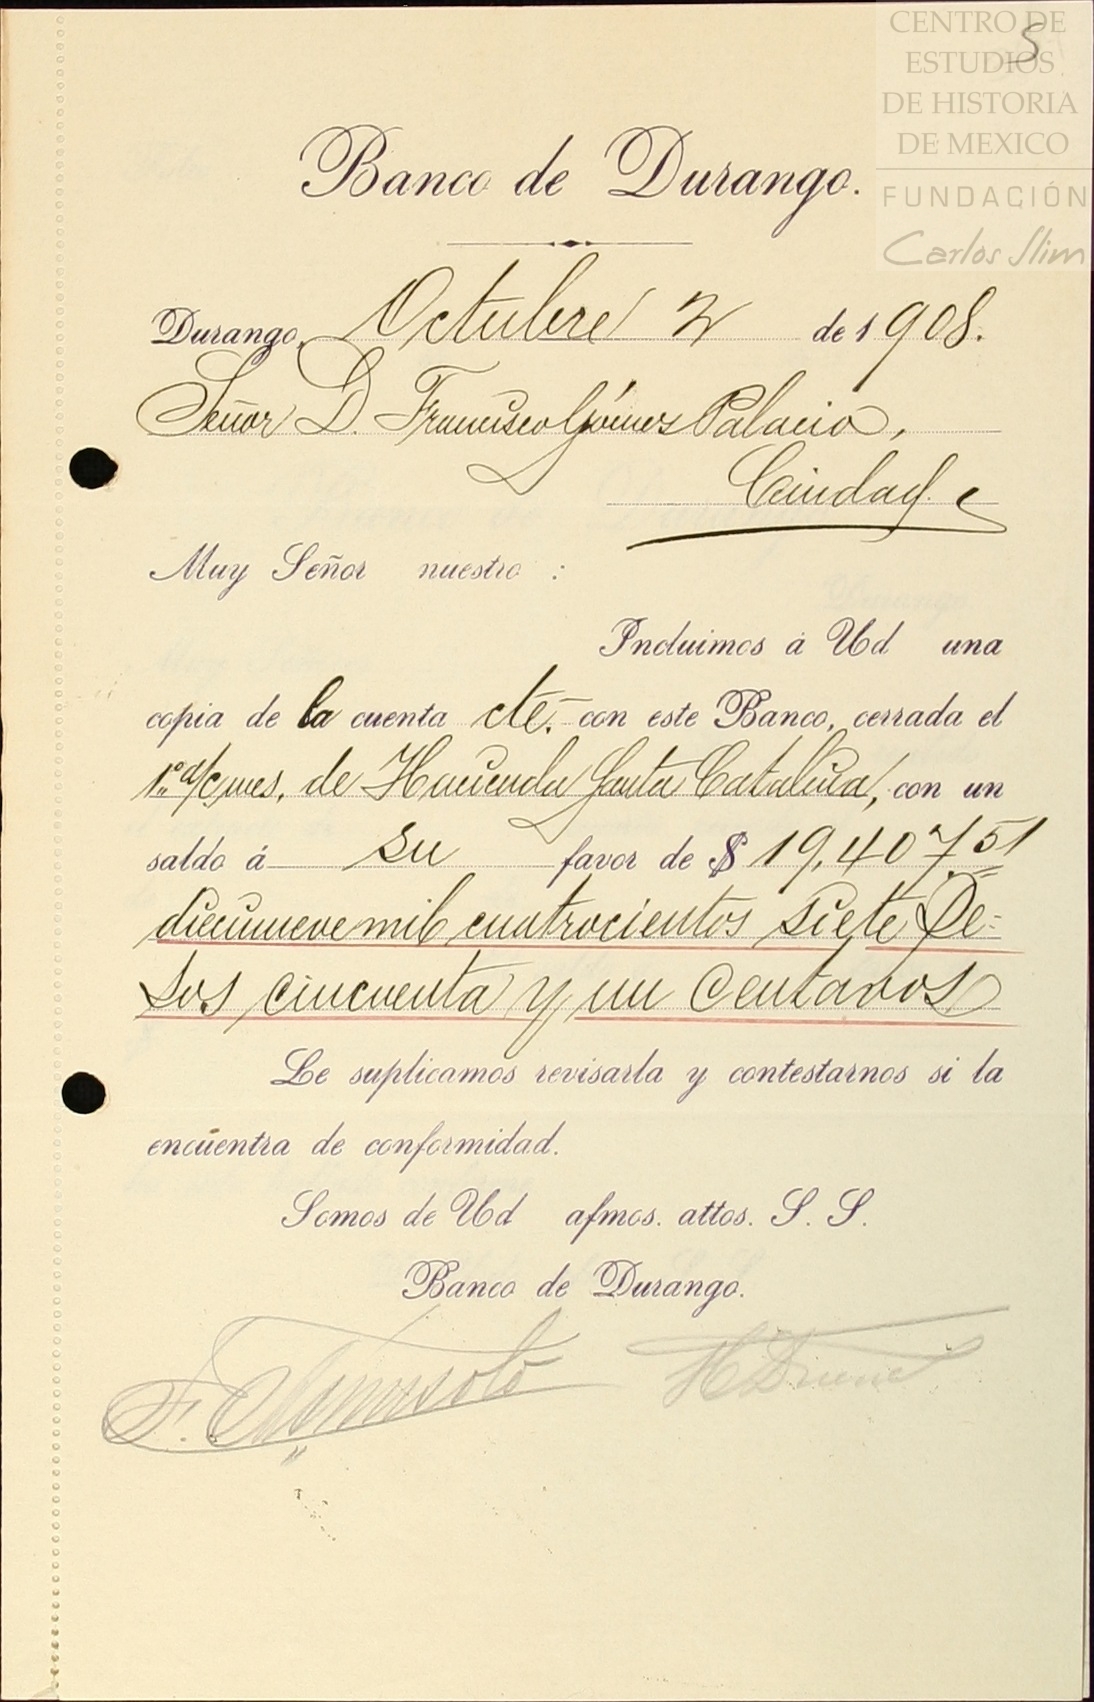 CENTRO DE
ESTUDIOS
DE HISTORIA
DE MEXICO
FUNDACIÓN
Carlos Slim
5
Banco de Durango.
Durango, Octubre 2 de 1908.
Señor D. Francisco Gómez Palacio,
Ciudad.
Muy Señor nuestro :
Incluimos á Ud una
copia de la cuenta cte. con este Banco, cerrada el
1º. d/c mes, de Hacienda Santa Catalina, con un
saldo á su favor de $ 19,407.51
diecinueve mil cuatrocientos siete Pe=
sos cincuenta y un centavos
Le suplicamos revisarla y contestarnos si la
encuentra de conformidad.
Somos de Ud afmos. attos. S. S.
Banco de Durango.
F.